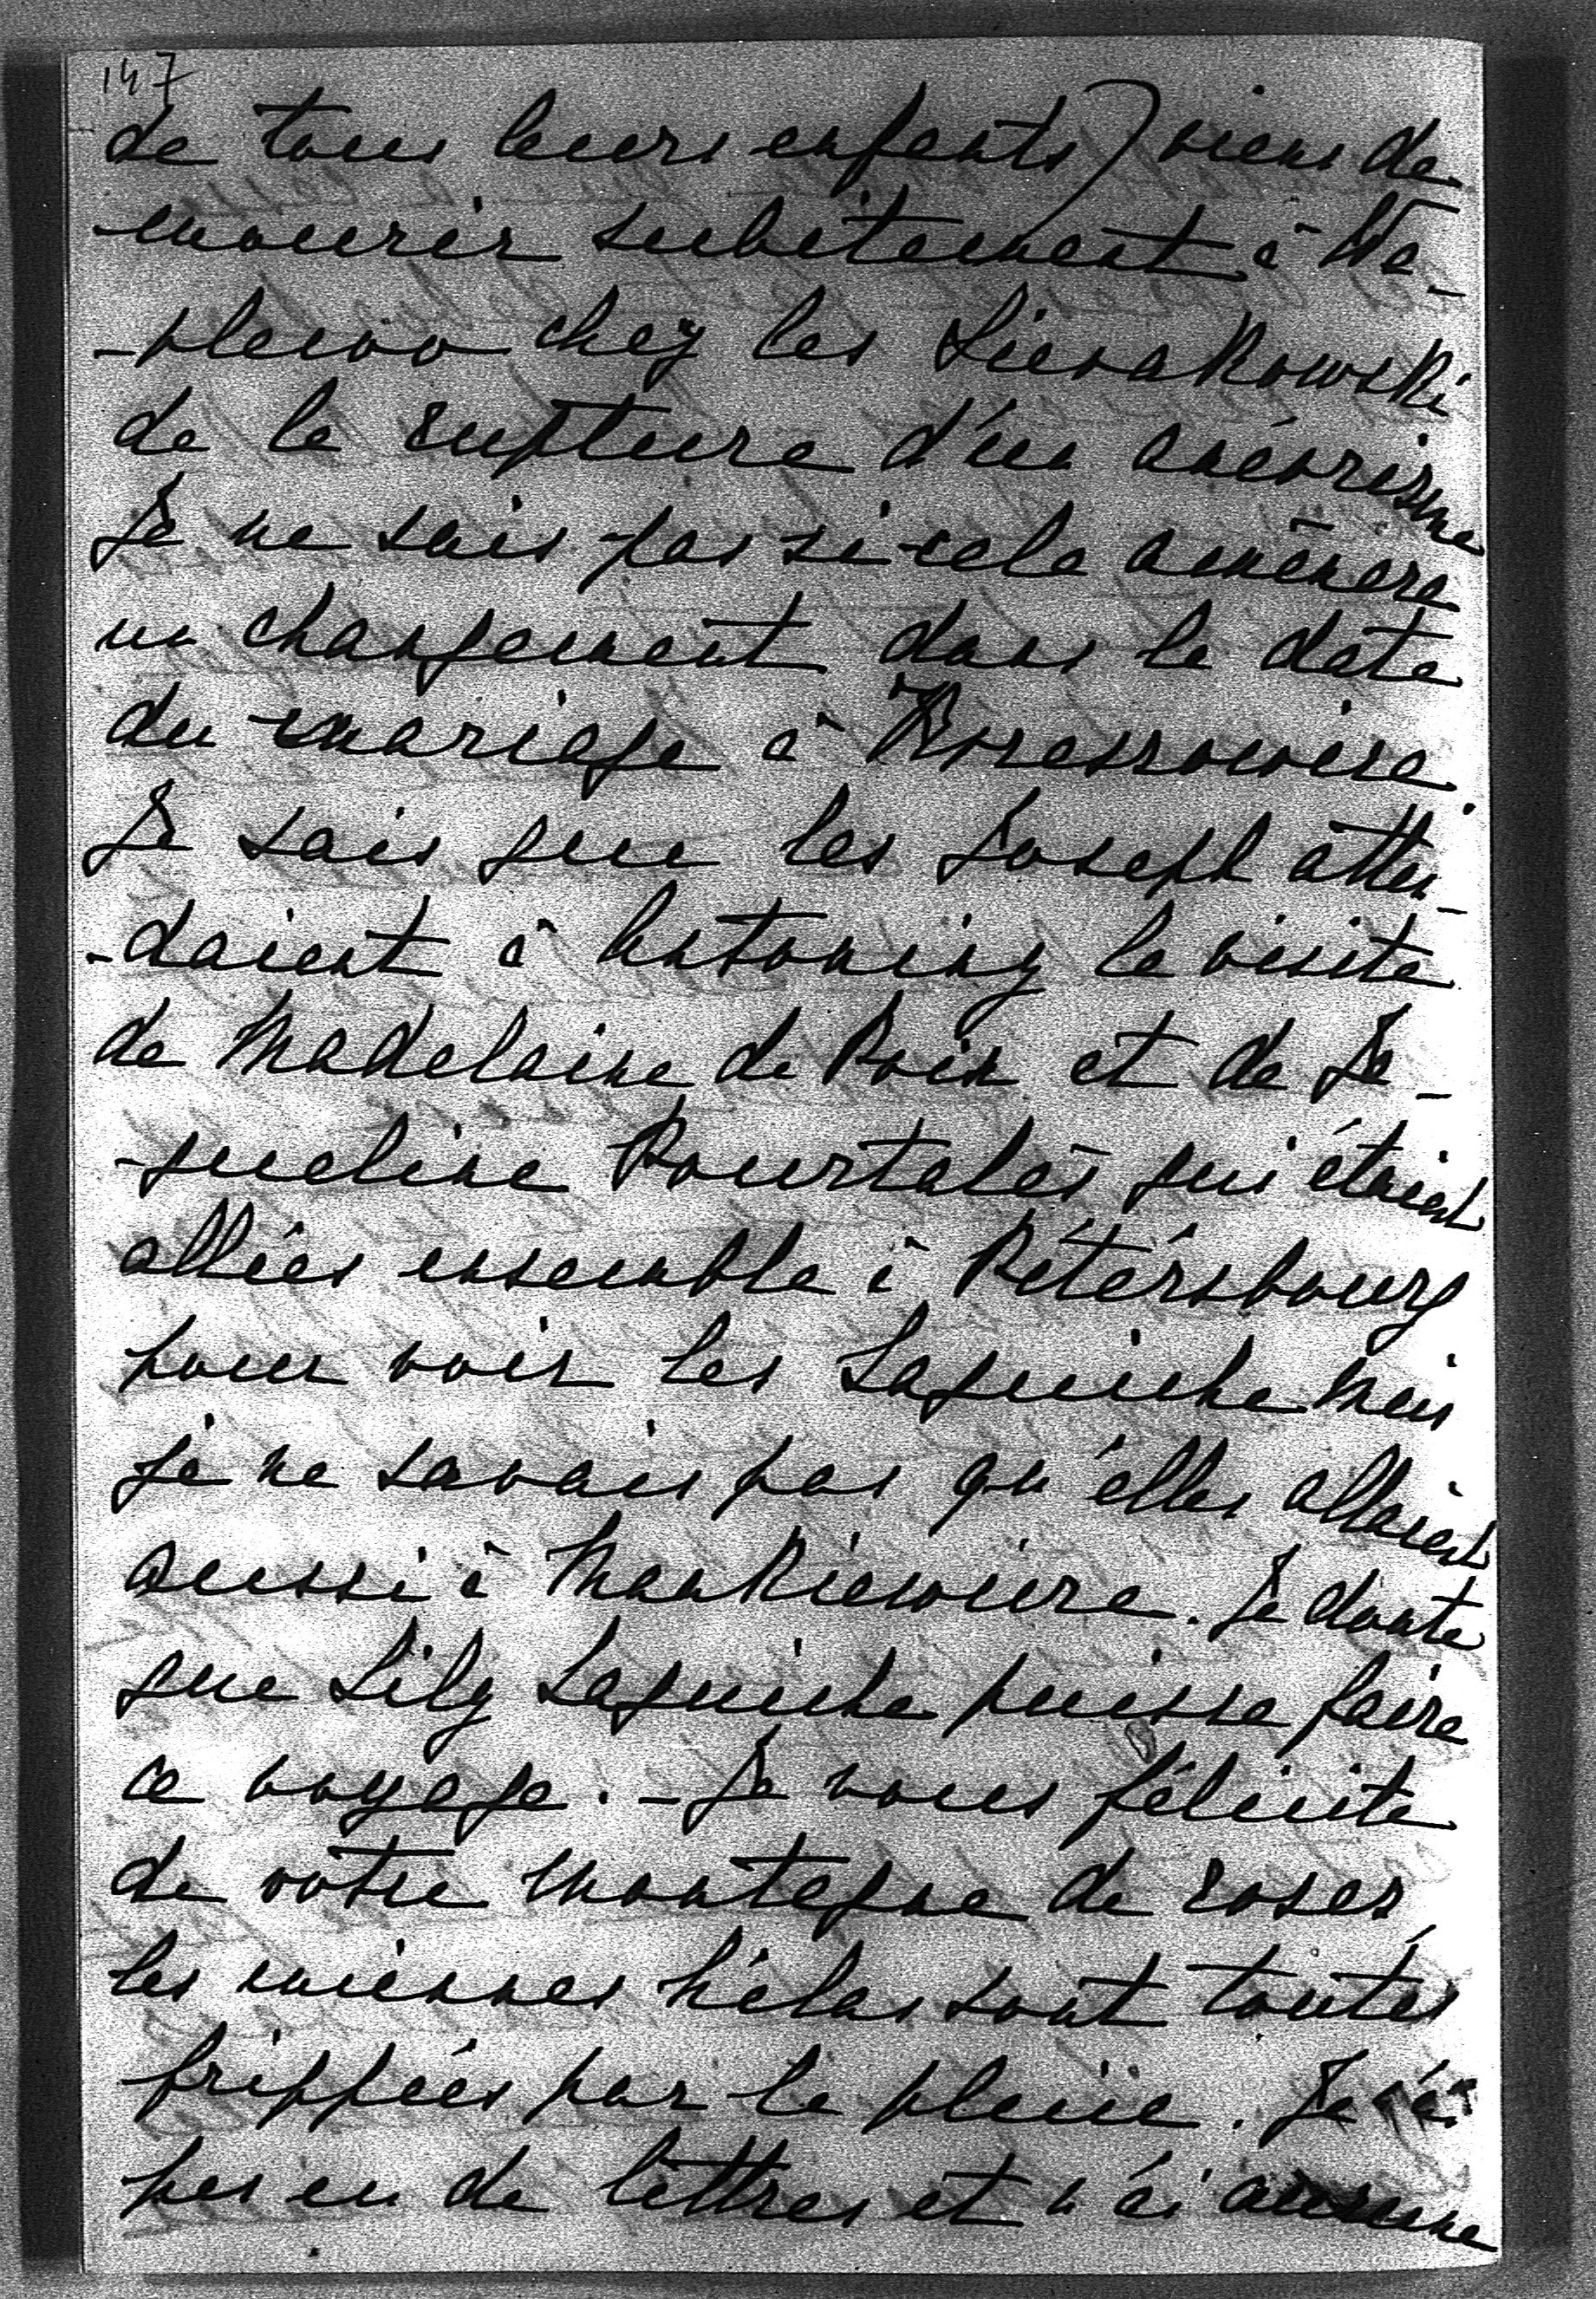 147
de tous leurs enfants) viens de
mourir subitement à Wa-
-plewo chez les Sierakowski
de la rupture d'un anévrisme
Je ne sais pas si cela amènera
un changement dans la date
du mariage à
Je sais que les Joseph atten-
-daient à Antoniny la visite
de Madelaine de Poix et de Ja-
-queline Pourtalès qui étaient
allées ensemble à Pétérsbourg
pour voir les Laguiche mais
je ne savais pas qu'elles allaient
aussi à Mankiewicze. Je doute
que Lily Laguiche puisse faire
ce voyage. - Je vous félicite
de votre montagne de roses,
les miennes hélas sont toutes
frippées par la pluie. Je n'ai
pas eu de lettres et n'ai aucune